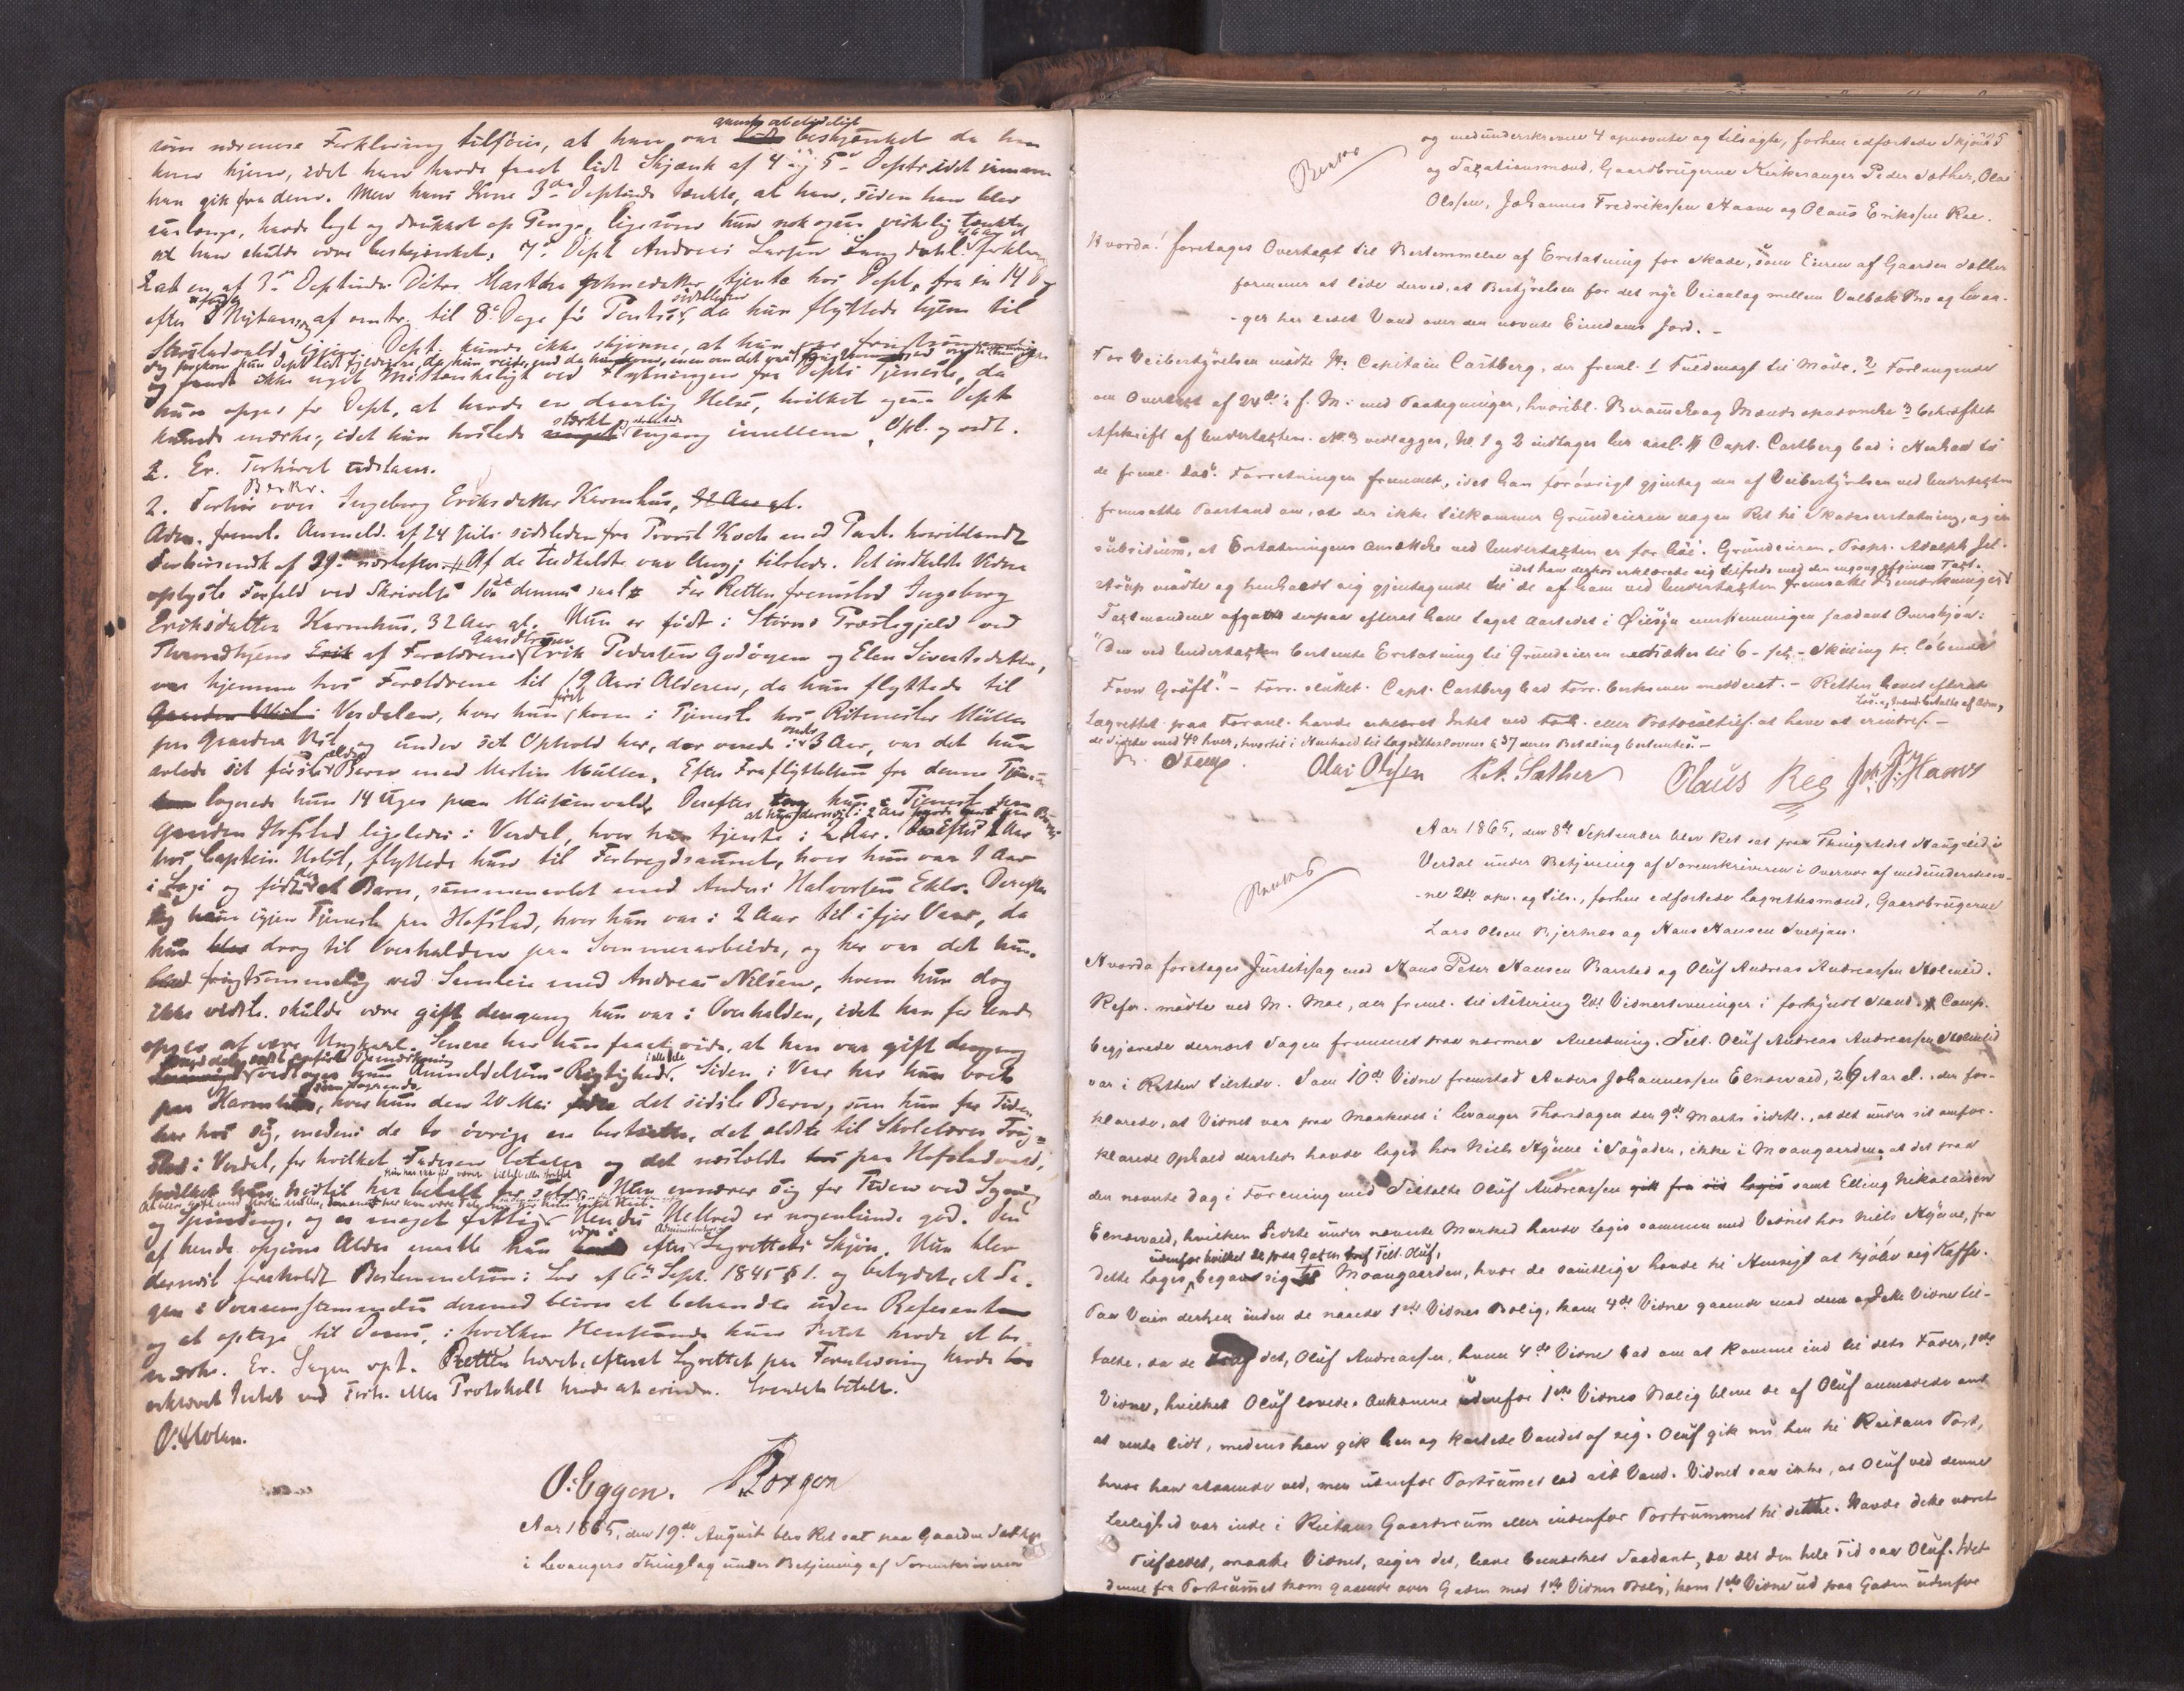 som nærmere Forklaring tilføies, at han var ganske ubetydeligt beskjænket da han
kom hjem, idet han havde faaet lidt Skjænk af 4 og 5 Deptr, idet
han gik fra dem. Men hans Kone 3die Deptinde tænkte, at han, siden han blev
saa længe, havde lagt og drukket op Penge, ligesom hun nok ogsaa virkelig tænkte
at han skulde være beskjænket. 7de Dept Andreas Larsen
at en af 3die Deptindes Døtre Martha Johnsdatter tjente hos Dept. fra en 14 Dage
efter Nytaar, af omtr. til 8te Dage før Pintse, da hun flyttede hjem til
igjen. Dept. kunde ikke skjønne, at hun var frugtsommelig
og fandt ikke noget Mistænkeligt ved Flytningen fra Depts Tjeneste, da
hun opgav for Dept, at have en daarlig Helse, hvilket ogsaa Dept
kunde mærke, idet hun hostede stærkt engang imellem. Opl. og vedt.
2. Ex. Forhøret udslutt.
2. Forhør over Ingeborg Eriksdatter Karmhus, 32 Aar gl.
Adm. freml. Anmeld. af 24 Juli sidstleden fra Provst Koch med Paat. hvoriblandt
Forhørsordr. af 29de næstefter. Af de Indkaldte var Angj. tilstede. Det indkaldte Vidne
oplyste Forfald ved Skrivelse For Retten fremstod Ingeborg
Eriksdatter Karmhus, 32 Aar gl. Hun er født i Størens Præstegjeld ved
Throndhjem af Forældrene Gaardbruger Erik Pedersen Godøyen og Elen Sivertsdatter,
var hjemme hos Forældrene til 19 Aars Alderen, da hun flyttede til
Verdalen, hvor hun først kom i Tjeneste hos Ritmester Müller
paa Gaarden og under sit Ophold her, der varede i 3 Aar, var det hun
avlede sit første Barn med Martin Müller. Efter Fraflyttelsen fra denne Tjeneste
logerede hun 14 Uger paa Mikvold. Derefter tog hun Tjeneste paa
Gaarden Hofstad ligeledes i Verdal, hvor hun tjente i 2 Aar. Efter 1 Aar
hos Captein Holst, flyttede hun til Forbregdsaunet, hvor hun var 1 Aar
i Logi og fødte et Barn, sammenavlet med Anders Halvorsen Eklo. Derefter
tog hun igjen Tjeneste paa Hofstad, hvor hun var i 2 Aar til ifjor Vaar, da
hun drog til Overhalden paa Sommerarbeide, og her var det hun
blev frugtsommelig ved Samleie med Andreas Nilsen, hvem hun dog
ikke vidste skulde være gift dengang hun var i Overhalden, idet han for hende
opgav at være Ungkarl. Senere har hun faaet vide, at han var gift dengang
vedtager hun Anmeldelsens Rigtighed i alle Dele. Siden i Vaar har hun boet
paa Karmhus, hvor hun den 20 Mai fødte det sidste Barn, som hun for Tiden
har hos sig, medens de to øvrige er bortsatte, det ældste til Skolelærer
i Verdal, for hvilket Faderen betaler og det næstældste paa Hofstadvald,
hvilket hun hidtil har betalt for selv. Hun ernærer sig for Tiden ved Syning
og Spinding, og er meget fattig. Hendes Helbred er nogenlunde god. Den
af hende opgivne Alder maatte hun have efter Lagrettets Skjøn. Hun blev
dernæst foreholdt Bestemmelsen i Lov af 6te Sept. 1845 § 1. og betydet, at Sa-
gen i Overensstemmelse dermed bliver at behandle uden Referent
og at optage til Doms, i hvilken Henseende hun Intet havde at be-
mærke. Ex. Sagen opt. Retten hævet, efterat Lagrettet paa Foranledning havde
erklæret Intet ved Forh. eller Protokoll havde at erindre. Svendet betalt.
O. Holm.
O. Eggen. Borgen
Aar 1865, den 19de August blev Ret sat paa Gaarden Sæther
i Levangers Thinglag under Betjening af Sorenskriveren
og medunderskrevne 4 opnævnte og tilsagte, forhen edfæstede Skjøns
og Taxationsmænd, Gaardbrugerne Kirkesanger Peder Sæther, Olai
Olssen, Johannes Fredrikssen Haave og Olaus Erikssen Ree.
Hvorda! foretages Overtaxt til Bestemmelse af Erstatning for Skade, som Eieren af Gaarden Sæther
formener at lide derved, at Bestyrelsen for det nye Veianlæg mellem Valbæk Bro og Levan-
-ger har ledet Vand over den nævnte Eiendoms Jord. -
For Veibestyrelsen mødte Hr. Capitain Castberg, der freml. 1 Fuldmagt til Møde, 2 Forlangende
om Overtaxt af 24de i f. M. med Paategninger, hvoribl. Berammelse og Mænds opnævnelse 3 bekræftet
Afskrift af Undertaxten. No 3 vedlægges, No. 1 g 2 indtages her saal. # Capt. Castberg bad i Henhold til
de freml. Doc. Forretningen fremmet, idet han forøvrigt gjentog den af Veibestyrelsen ved Undertaxten
fremsatte Paastand om, at der ikke tilkommer Grundeieren nogen Ret til Skadeserstatning, og in
subsidium, at Erstatningens Ansættelse ved Undertaxten er for høi. Grundeieren, Propr. Adolph Jel-
idet han derhos erklærede sig tilfreds med den engang afgivne Taxt.
strup mødte og henholdt sig gjentagende til de af ham ved Undertaxten fremsatte Bemærkninger
Taxtmændene afgave derpaa efterat have taget Aastedet i Øiesyn eenstemmigen saadant Overskjøn:
"Den ved Undertaxten bestemte Erstatning til Grundeieren nedsættes til 6 - sex - Skilling pr. løbende
Favn Grøft." - Forr. sluttet. Capt. Castberg bad Forr. beskreven meddeelt. - Retten hævet efterat
Lagrettet paa Foranl. havde erklæret Intet ved Forh. eller Protocoltilf. at have at erindre. -
de Sidste med 48 hver, hvortil i Henhold til Lagretteslovens § 37 deres Betaling bestemtes. -
Olai Olssen P.A. Sæther Olaus Ree Joh. F. Haave
Aar 1865, den 8de September blev Ret sat paa Thingstedet Haugslid i
Verdal under Betjening af Sorenskriveren i Overvær af medunderskrev-
-ne 2de opn. og tils., forhen edfæstede Lagrettesmænd, Gaardbrugerne
Lars Olsen Bjermæs og Hans Hansen Svedjan.
Hvorda foretages Justitssag mod Hans Peter Hansen Barsted og Oluf Andreas Andreassen Holmlid.
Refer. mødte ved M. Moe, der freml. til Actering 2de Vidnestevninger i forkyndt Stand. # Comp.
begjærede dernæst Sagen fremmet paa nærmere Anledning. Tilt. Oluf Andreas Andreassen Holmlid
var i Retten tilstede. Som 10de Vidne fremstod Anders Johannessen Elnesvald, 26 Aar gl. der for-
klarede, at Vidnet var paa Markedet i Levanger Thorsdagen den 9de Marts sidstl., at det under sit omfor-
klarede Ophold dersteds havde logis hos Niels Hynne i Søgaden, ikke i Moangaarden, at det paa
den nævnte dag i Forening med Tiltalte Oluf Andreassen gik fra sit logis samt Elling Nikolaisen
Elnesvald, hvilken Sidste under nævnte Marked havde logis sammen med Vidnet hos Niels Hynne, fra
udenfor hvilket de paa Gaden traf Tilt. Oluf,
dette Logis, begave sig til Moangaarden, hvor de samtlige havde til Hensigt at kjøbe sig Kaffe.
Paa Veien derhen inden de naaede 1ste Vidnes Bolig, kom 4de Vidne gaaende mod dem og dette Vidne til-
talte, da de traf det, Oluf Andreassen, hvem 4de Vidne bad om at komme ind til dets Fader, 1ste
Vidne, hvilket Oluf lovede. Ankomne udenfor 1ste Vidnes Bolig bleve de af Oluf anmodede om
at vente lidt, medens han gik hen og kastede Vandet af sig. Oluf gik nu hen til Reitans Port,
hvor han staaende ved, men udenfor Portrummet lod sit Vand. Vidnet saa ikke, at Oluf ved denne
Leilighed var inde i Reitans Gaardsrum eller indenfor Portrummet til dette. Havde dette været
Tilfældet, maatte Vidnet, siger det, have bemærket Saadant, da det den hele Tid saa Oluf. Idet
denne fra Portrummet kom gaaende over Gaden mod 1ste Vidnes Bolig, kom 1ste Vidne ud paa Gaden udenfor